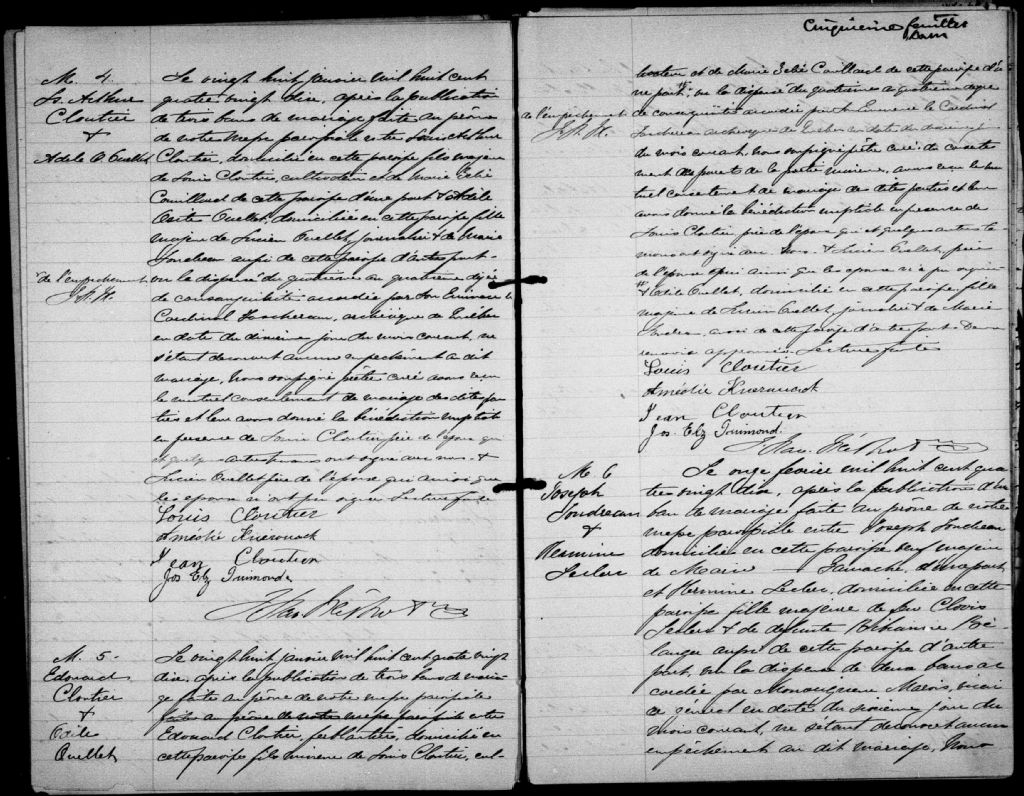 M. 4.
Ls. Arthur
Cloutier
&
Adèle O. Ouellet
Le vingt huit janvier mil huit cent
quatre vingt dix, après la publication
de trois bans de mariage faite au prône
de notre messe paroissiale entre Louis Arthur
Cloutier, domicilié en cette paroisse fils majeur
de Louis Cloutier, cultivateur et de Marie Zélié
Couillard de cette paroisse d'une part & Adèle
Ouellet, domiciliée en cette paroisse fille
majeure de Lucien Ouellet, journalier & de Marie
Jondreau aussi de cette paroisse d'autre part
de l'empêchement
vu la dispense du quatrième au quatrième degré
de consanguinité accordée par Son Eminence le
Cardinal Taschereau, archevêque de Québec
en date du dixième jour du mois courant, ne
s'étant découvert aucun empêchement au dit
mariage, Nous soussigné prêtre curé avons reçu
le mutuel consentement de mariage des dites par
ties et leur avons donné la bénédiction nuptiale
en présence de Louis Cloutier père de l'époux qui
et quelques autres témoins ont signé avec nous &
Lucien Ouellet père de l'épouse qui ainsi que
les époux n'ont pu signer. Lecture faite
Louis Cloutier
Amédée Kuerouack
Jean Cloutier
Jos Elz
M. 5-
Edouard
Cloutier
&
Odile
Ouellet
Le vingt huit janvier mil huit cent quatre vingt
dix, après la publication de trois bans de maria
ge faite au prône de notre messe paroissiale
faite au prône de notre messe paroissiale entre
Edouard Cloutier, ferblantier, domicilié en
cette paroisse fils mineur de Louis Cloutier, cul-
Cinquième feuillet
tivateur et de Marie Zélié Couillard de cette paroisse d'u
ne part, vu la dispense du quatrième au quatrième degré
de l'empêchement
de consanguinité accordée par Son Eminence le Cardinal
Taschereau archevêque de Québec en date du
du mois courant, nous soussigné prêtre curé, du consente
ment des parents de la partie mineure, avons reçu le mu
tuel consentement de mariage des dites parties et leur
avons donné la bénédiction nuptiale en présence de
Louis Cloutier père de l'époux qui et quelques autres té
moins ont signé avec nous & Lucien Ouellet, père
de l'épouse qui ainsi que les époux n'a pu signer
& Odile Ouellet, domiciliée en cette paroisse, fille
majeure de Lucien Ouellet, journalier & de Marie
Jondreau, aussi de cette paroisse d'autre part. Deux
renvois approuvés. Lecture faite
Louis Cloutier
Amédée Kuerouack
Jean Cloutier
Jos. Elz
M. 6
Joseph
Jondreau
&
Hermine
Leclerc
Le onze février mil huit cent qua
tre vingt dix, après la publication d'un
ban de mariage faite au prône de notre
messe paroissiale entre Joseph Jondreau
domicilié en cette paroisse veuf majeur
de Marie — Gamache, d'une part
et Hermine Leclerc, domiciliée en cette
paroisse fille majeure de feu Clovis
Leclerc & de défunte Bé
langer aussi de cette paroisse d'autre
part, vu la dispense de deux bans ac
cordée par Monseigneur Marois, vicai
re général en date du sixième jour du
mois courant, ne s'étant découvert aucun
empêchement au dit mariage, Nous